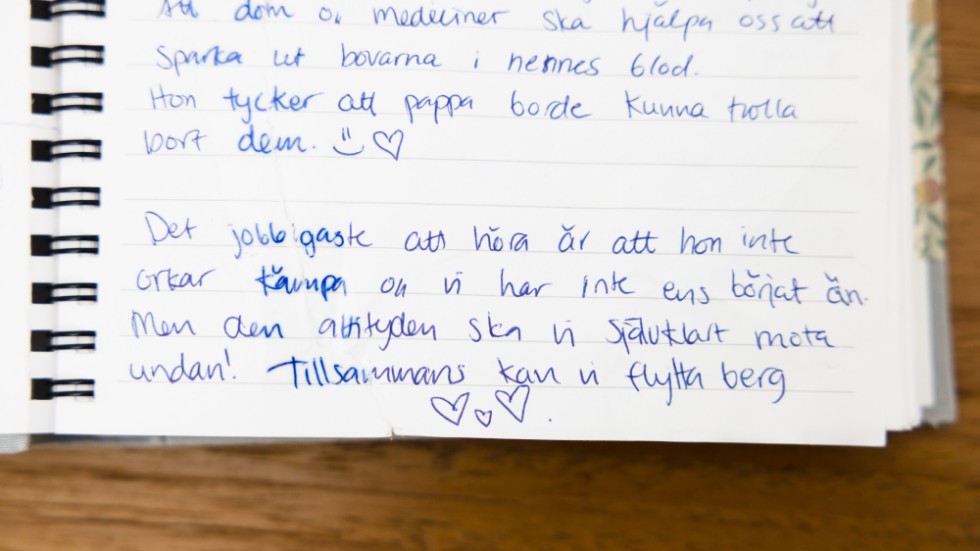 Att dom o. medeciner ska hjälpa oss att
Sparka ut bovarna i hennes blod.
Hon tycker att pappa borde kunna trolla
bort dem. :) ♡
Det jobbigaste att höra är att hon inte
orkar kämpa och vi har inte ens börjat än.
Men den attityden ska vi självklart mota
undan! Tillsammans kan vi flytta berg
♡♡♡.